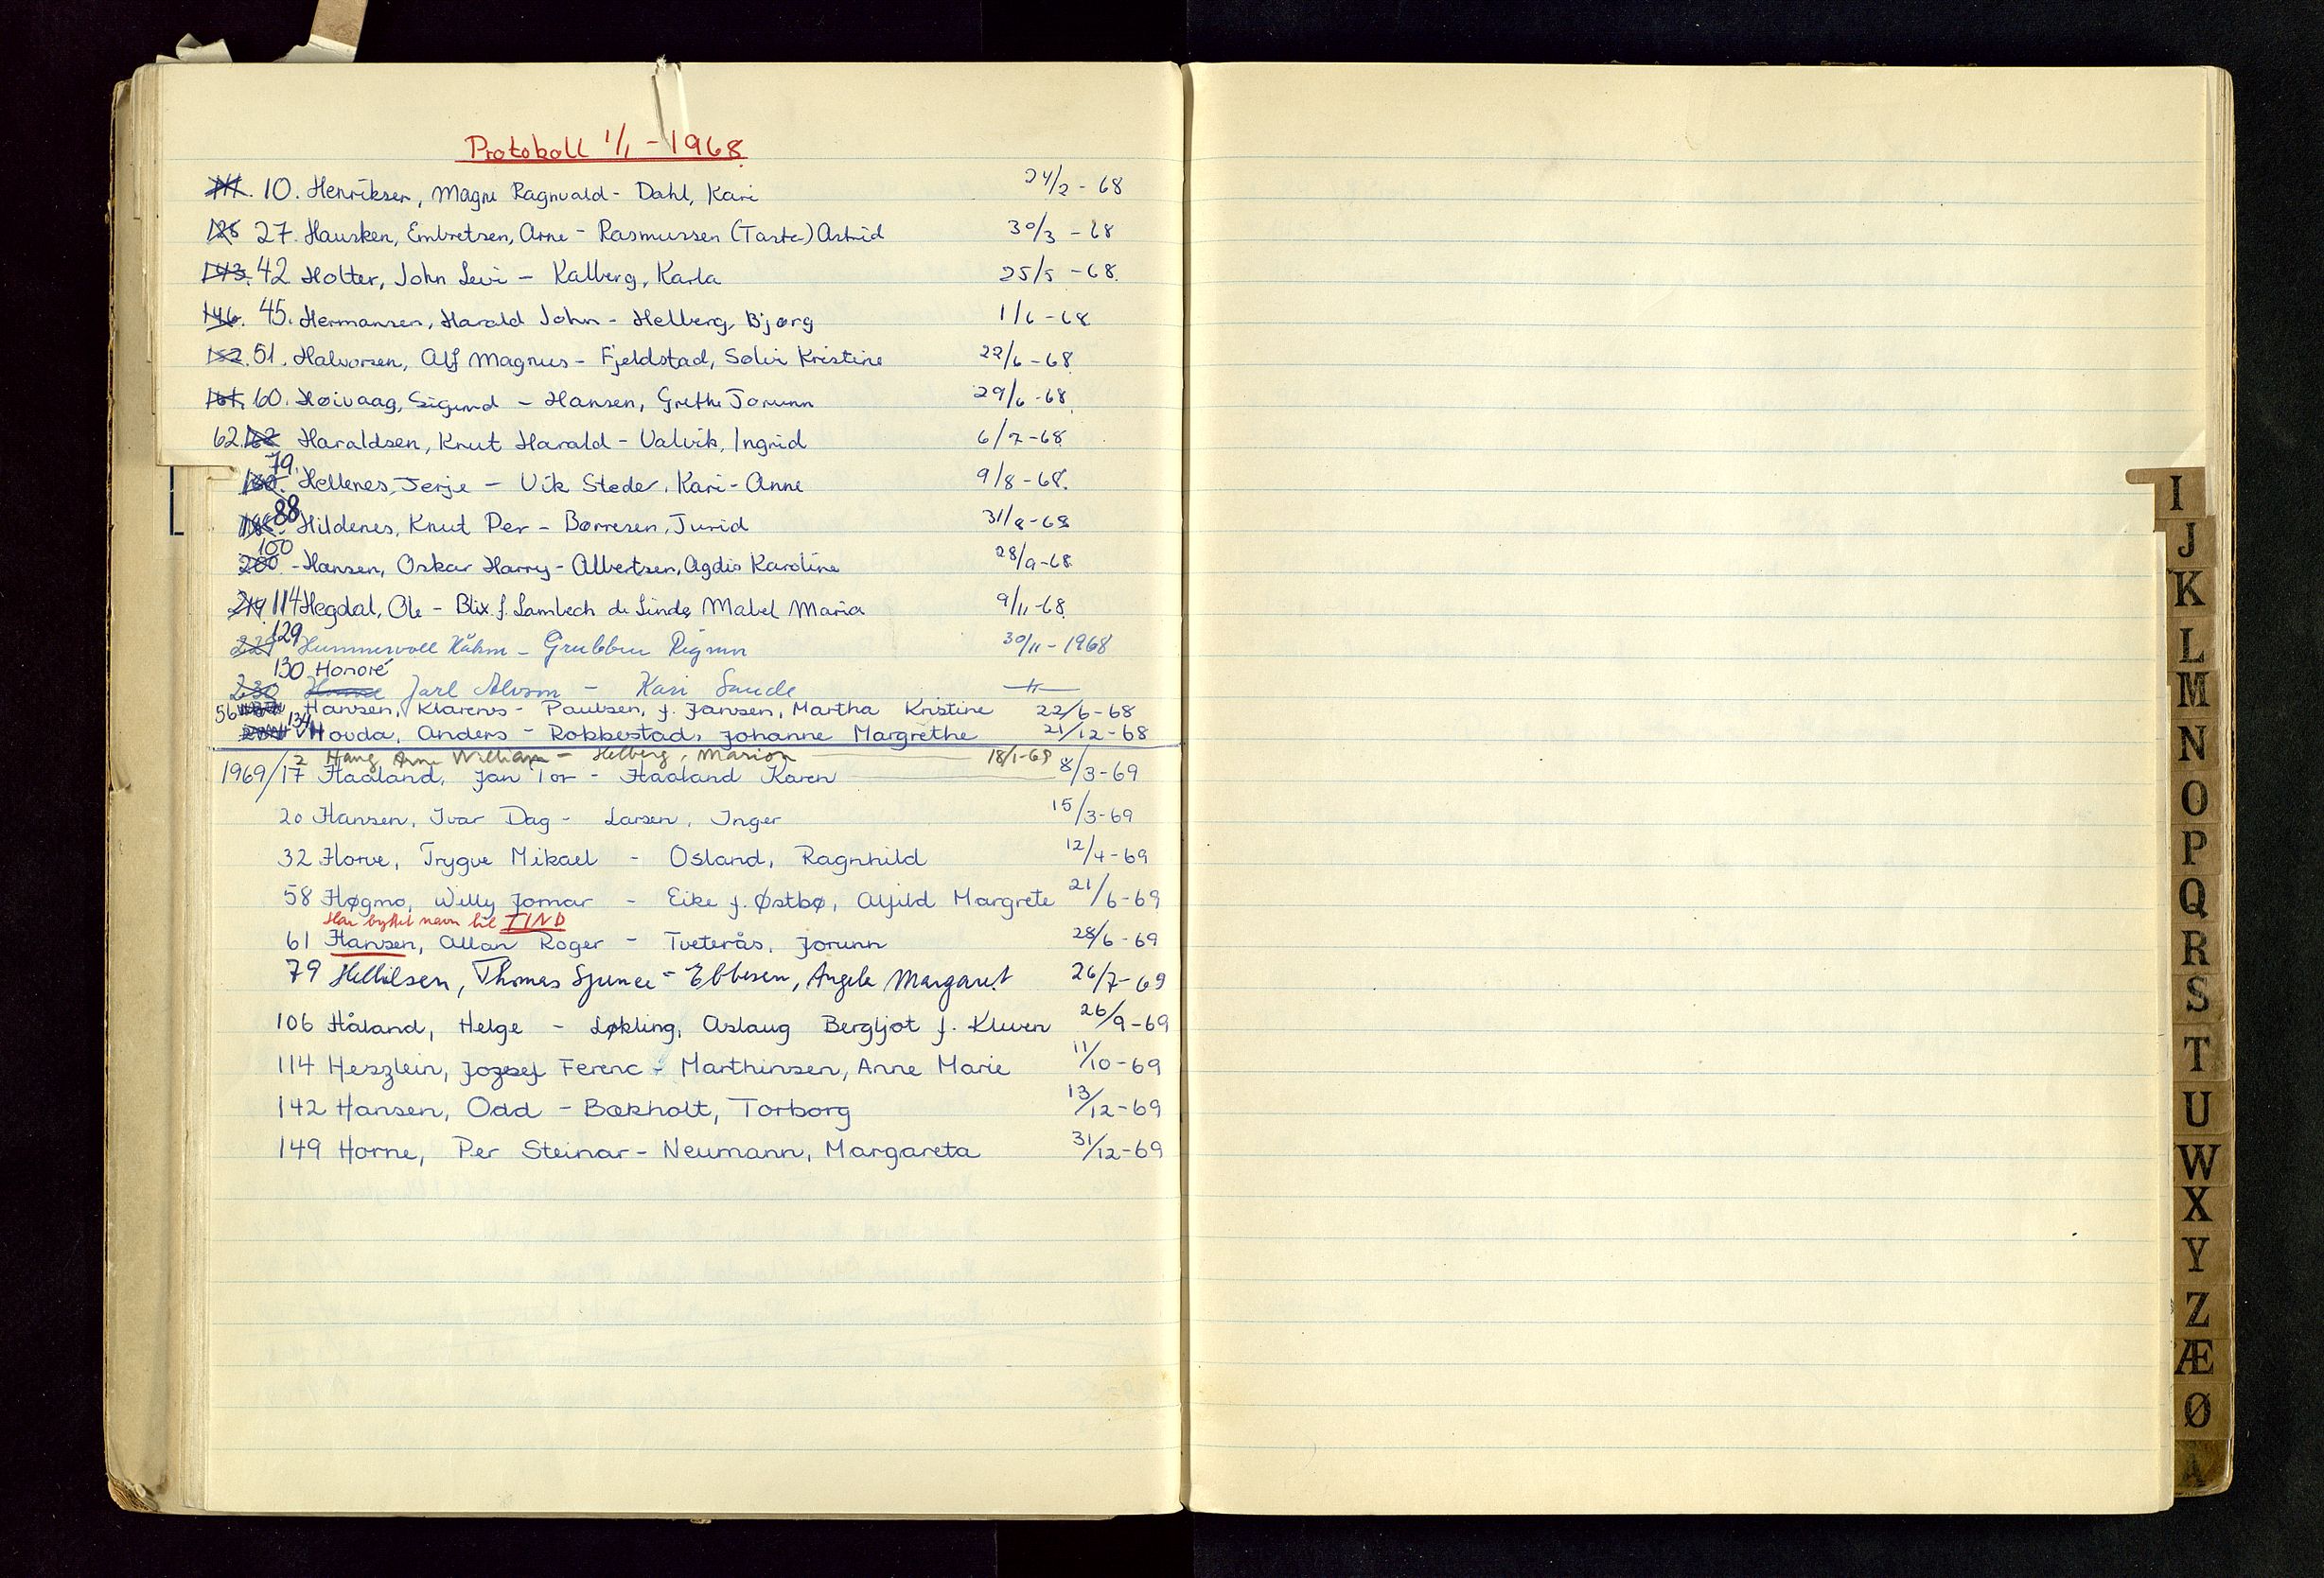 Protokoll 1/1 - 1968
10. Henriksen, Magne Ragnvald - Dahl, Kari 24/2 - 68
128 27. Hausken, Embretsen, Arne - Rasmussen (Tasta) Astrid 30/3 - 68
143. 42 Holter, John Levi - Kalberg, Karla 25/5 - 68.
146. 45. Hermansen, Harald John - Helberg, Bjørg 1/6 - 68
152. 51. Halvorsen, Alf Magnus - Fjeldstad, Solvi Kristine 22/6 - 68
161. 60. Høivaag, Sigurd - Hansen, Grethe Jorunn 29/6 - 68
62. Haraldsen, Knut Harald - Valvik, Ingrid 6/7 - 68
79. Hellenes, Terje - Vik Steder, Kari-Anne 9/8 - 68.
88 Hildenes, Knut Per - Børresen, Turid 31/8 - 68
100
200 - Hansen, Oskar Harry - Albertsen, Agdis Karoline 28/9 - 68
219. 114 Hegdal, Ole - Blix f. Lambech de Linde, Mabel Maria 9/11 - 68
129
229 Hummervoll Håkon - Grubben Rigmor 30/11 - 1968
130 Honoré
230 Jarl Alvson - Kari Sande —"—
56 Hansen, Klarens - Paulsen, f. Jansen, Martha Kristine 22/6 - 68
134 Hovda, Anders - Rokkestad, Johanne Margrethe 21/12 - 68
2 Haug Arne William - Helberg, Marion 18/1-69
1969/17 Haaland, Jan Tor - Haaland Karen 8/3 - 69
20 Hansen, Ivar Dag - Larsen, Inger 15/3 - 69
32 Horve, Trygve Mikael - Osland, Ragnhild 12/4 - 69
58 Høgmo, Willy Jomar - Eike f. Østbø, Alfild Margrete 21/6 - 69
Har byttet navn til TIND
61 Hansen, Allan Roger - Tveterås, Jorunn 28/6 - 69
79 Hellilsen, Thomas Spence - Ebbesen, Angela Margaret 26/7 - 69
106 Håland, Helge - Løkling, Aslaug Bergljot f. Kluven 26/9 - 69
114 Heszlein, Jozsef Ferenc - Marthinsen, Anne Marie 11/10 - 69
142 Hansen, Odd - Bækholt, Torborg 13/12 - 69
149 Horne, Per Steinar - Neumann, Margareta 31/12 - 69
I
J
K
L
M
N
O
P
Q
R
S
T
U
W
X
Y
Z
Æ
Ø